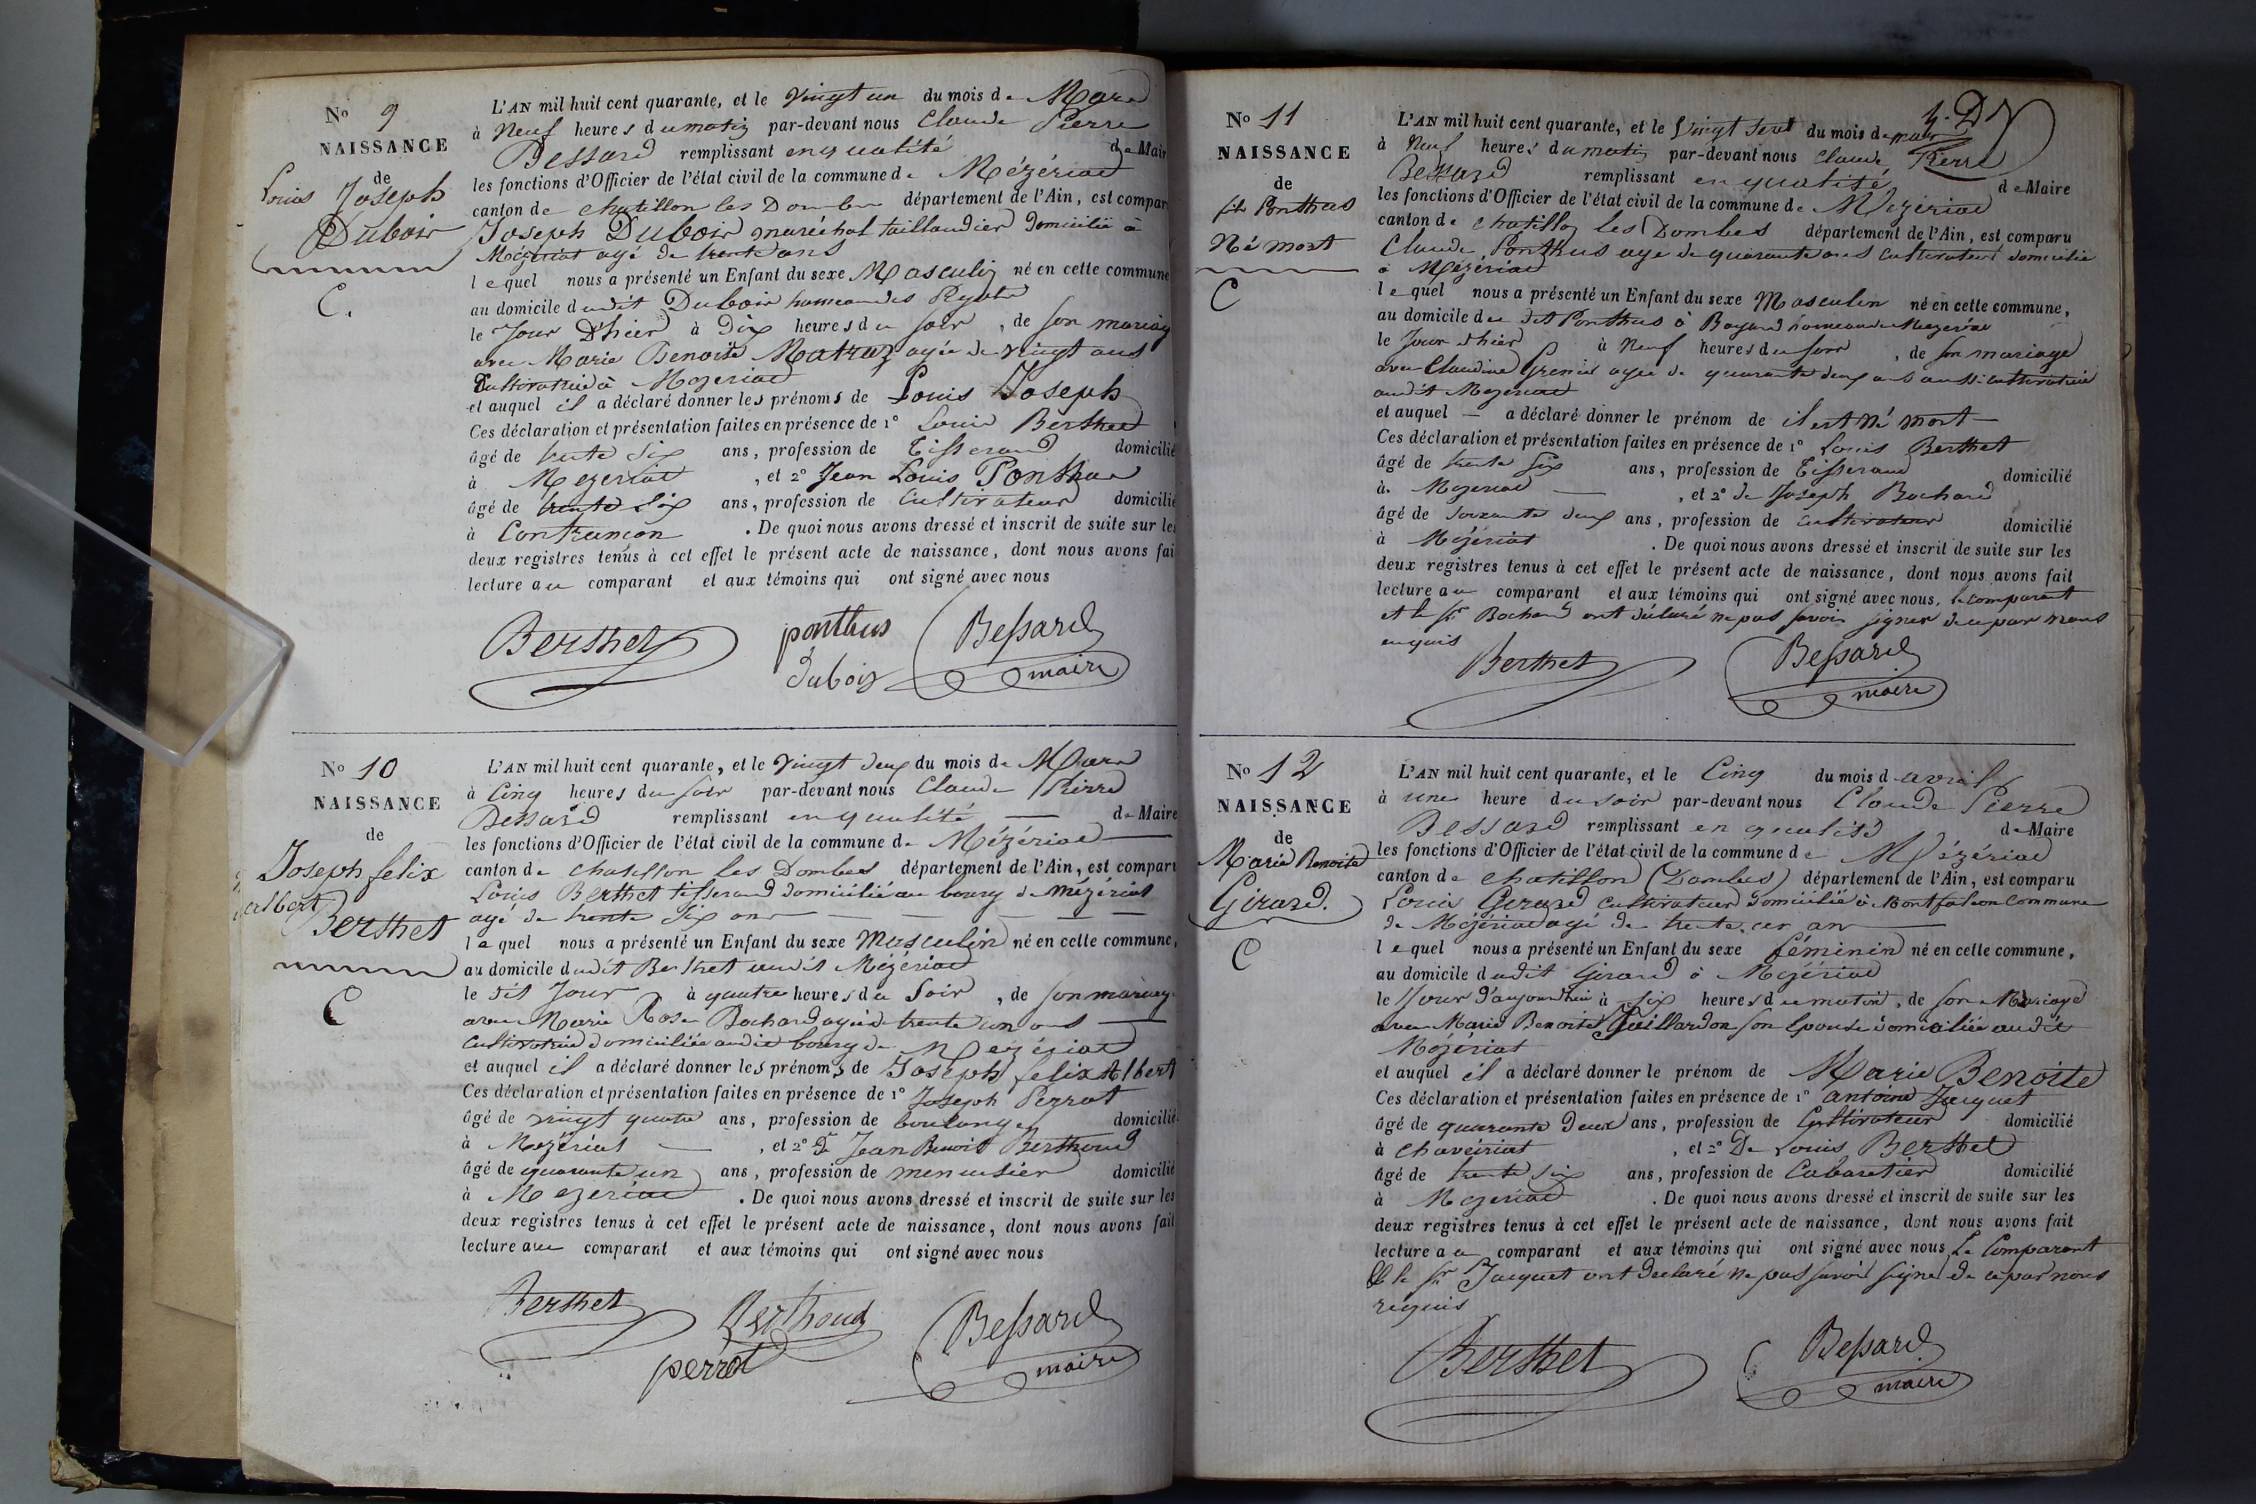 No 9
NAISSANCE
de
Louis Joseph
Dubois
C.
L'AN mil huit cent quarante, et le vingt un du mois de Mars
à Neuf heures du matin par-devant nous Claude Pierre
Bessard remplissant en qualité de Mair
les fonctions d'Officier de l'état civil de la commune de Mézériat
canton de chatillon les Dombes département de l'Ain, est compar
Joseph Dubois maréchal taillandier domicilié à
Mézériat agé de trente ans
lequel nous a présenté un Enfant du sexe Masculin né en cette commune
au domicile dudit Dubois hameau des
le Jour D'hier à Dix heures du soir, de son mariag
avec Marie Benoite agée de vingt ans
Cultivatrice à Mezeriat
et auquel il a déclaré donner les prénoms de Louis Joseph
Ces déclaration et présentation faites en présence de 1° Louis Berthet
âgé de trente six ans, profession de Tisserand domicilié
à Mezeriat, et 2° Jean Louis Ponthus
âgé de trente six ans, profession de Cultivateur domicilié
à Confrancon. De quoi nous avons dressé et inscrit de suite sur les
deux registres tenus à cet effet le présent acte de naissance, dont nous avons fai
lecture au comparant et aux témoins qui ont signé avec nous
Berthet ponthus Bessard
dubois maire
No 10
NAISSANCE
de
Joseph felix
albert
Berthet
C
L'AN mil huit cent quarante, et le vingt deux du mois de Mars
à Cinq heures du soir par-devant nous Claude Pierre
Bessard remplissant en qualité de Maire
les fonctions d'Officier de l'état civil de la commune de Mézériat
canton de chatillon les Dombes département de l'Ain, est comparu
Louis Berthet tisserand domicilié au bourg de mézériat
agé de trente six ans
lequel nous a présenté un Enfant du sexe Masculin né en cette commune,
au domicile dudit Berthet audit Mézériat
le dit Jour à quatre heures du Soir, de son mariage
avec Marie Rose Bochard agée de trente un ans
Cultivatrice domiciliée audit bourg de Mezériat
et auquel il a déclaré donner les prénoms de Joseph felix Albert
Ces déclaration et présentation faites en présence de 1° Joseph Perrot
âgé de vingt quatre ans, profession de boulanger domicilié
à Mezériat, et 2° De Jean Benoit Berthoud
âgé de quarante un ans, profession de menuisier domicilié
à Mezeriat. De quoi nous avons dressé et inscrit de suite sur les
deux registres tenus à cet effet le présent acte de naissance, dont nous avons fait
lecture au comparant et aux témoins qui ont signé avec nous
Berthet Berthoud Bessard
perrot maire
No 11
NAISSANCE
de
fils Ponthus
Né mort
C
L'AN mil huit cent quarante, et le Vingt sept du mois de mars
à Neuf heures du matin par-devant nous Claude Pierre
Bessard remplissant en qualité de Maire
les fonctions d'Officier de l'état civil de la commune de Mézériat
canton de chatillon les Dombes département de l'Ain, est comparu
Claude Ponthus agé de quarante ans Cultivateur domicilié
à Mézériat
lequel nous a présenté un Enfant du sexe Masculin né en cette commune,
au domicile du dit Ponthus à hameau de Mezeriat
le Jour d'hier à Neuf heures du soir, de son mariage
avec Claudine agée de quarante deux ans aussi cultivatrice
audit Mezeriat
et auquel — a déclaré donner le prénom de il est Né mort
Ces déclaration et présentation faites en présence de 1° Louis Berthet
âgé de trente six ans, profession de Tisserand domicilié
à Mezeriat, et 2° de Joseph Bochard
âgé de soixante deux ans, profession de cultivateur domicilié
à Mézériat. De quoi nous avons dressé et inscrit de suite sur les
deux registres tenus à cet effet le présent acte de naissance, dont nous avons fait
lecture au comparant et aux témoins qui ont signé avec nous, le comparant
et le Sr Bochard ont déclaré ne pas savoir signer de ce par nous
enquis
Berthet Bessard
maire
No 12
NAISSANCE
de
Marie Benoite
Girard.
C
L'AN mil huit cent quarante, et le Cinq du mois d'avril
à une heure du soir par-devant nous Claude Pierre
Bessard remplissant en qualité de Maire
les fonctions d'Officier de l'état civil de la commune de Mézériat
canton de chatillon (Dombes) département de l'Ain, est comparu
Louis Girard cultivateur domicilié à Montfalcon Commune
de Mézériat agé de trente un an
lequel nous a présenté un Enfant du sexe féminin né en cette commune,
au domicile dudit Girard à Mézériat
le Jour d'aujourd'hui à six heures du matin, de son Mariage
avec Marie Benoite son Epouse domiciliée audit
Mézériat
et auquel il a déclaré donner le prénom de Marie Benoite
Ces déclaration et présentation faites en présence de 1° antoine Jacquet
âgé de quarante deux ans, profession de Cultivateur domicilié
à chaveiriat, et 2° De Louis Berthet
âgé de trente six ans, profession de Cabaretier domicilié
à Mezeriat. De quoi nous avons dressé et inscrit de suite sur les
deux registres tenus à cet effet le présent acte de naissance, dont nous avons fait
lecture au comparant et aux témoins qui ont signé avec nous Le Comparant
et le Sr Jacquet ont declaré ne pas savoir signer de ce par nous
requis
Berthet Bessard
maire